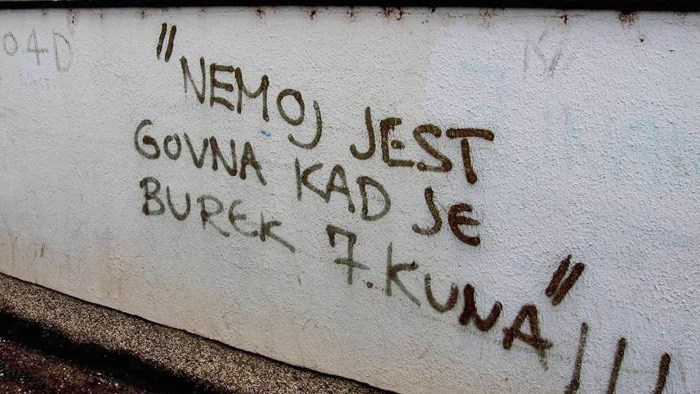 04D
"NEMOJ JEST
GOVNA KAD JE
BUREK 7.KUNA"